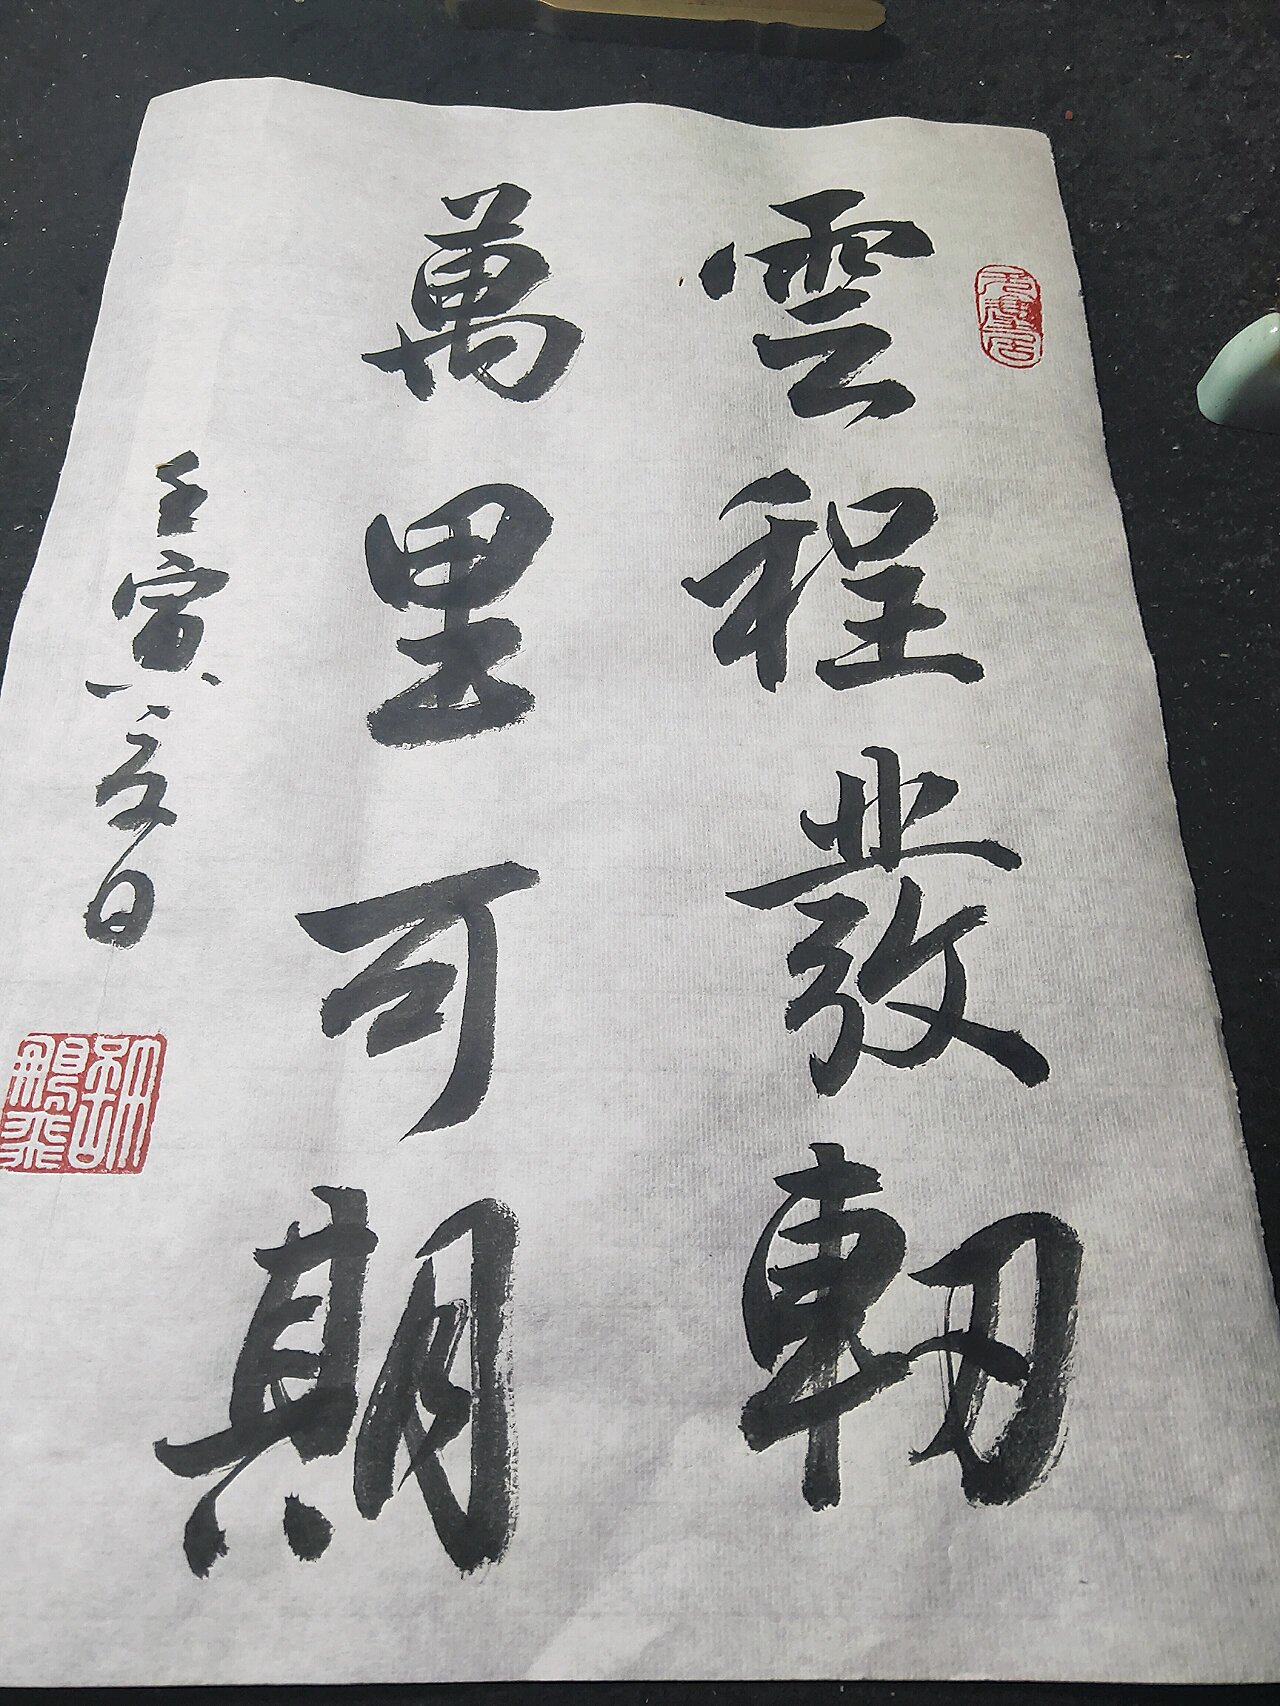 雲程發軔
萬里可期
壬寅夏日